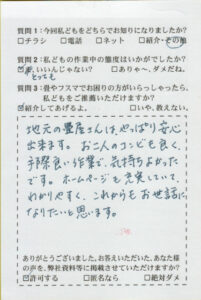 質問1:今回私どもをどちらでお知りになりましたか?
□チラシ □電話 □ネット □紹介・その他
質問2:私どもの作業中の態度はいかがでしたか?
□いいんじゃない? □ありゃ〜、ダメだね。
とっても
質問3:畳やフスマでお困りの方がいらっしゃったら、
私どもをご推薦いただけますか?
□紹介してあげるよ。 □いや、教えない。
地元の畳屋さんは、やっぱり安心
出来ます。お二人のコンビも良く、
手際良い作業で、気持ちよかった
です。ホームページも充実していて、
わかりやすく、これからもお世話に
なりたいと思います。
ありがとうございました。お答えいただいた、あなた様
の声を、弊社資料等に掲載させていただけますか?
□許可する □匿名なら □絶対ダメ